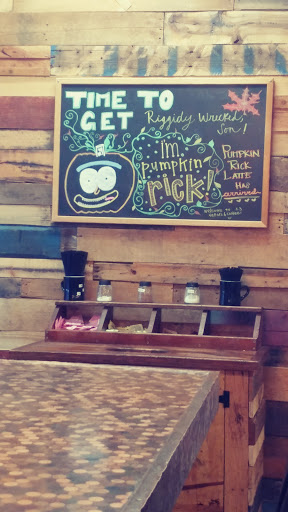 TIME TO
GET
Riggidy Wrecked,
Son!
I'm
pumpkin
rick!
PUMPKIN
RICK
LATTE
HAS
arrived
WELCOME TO